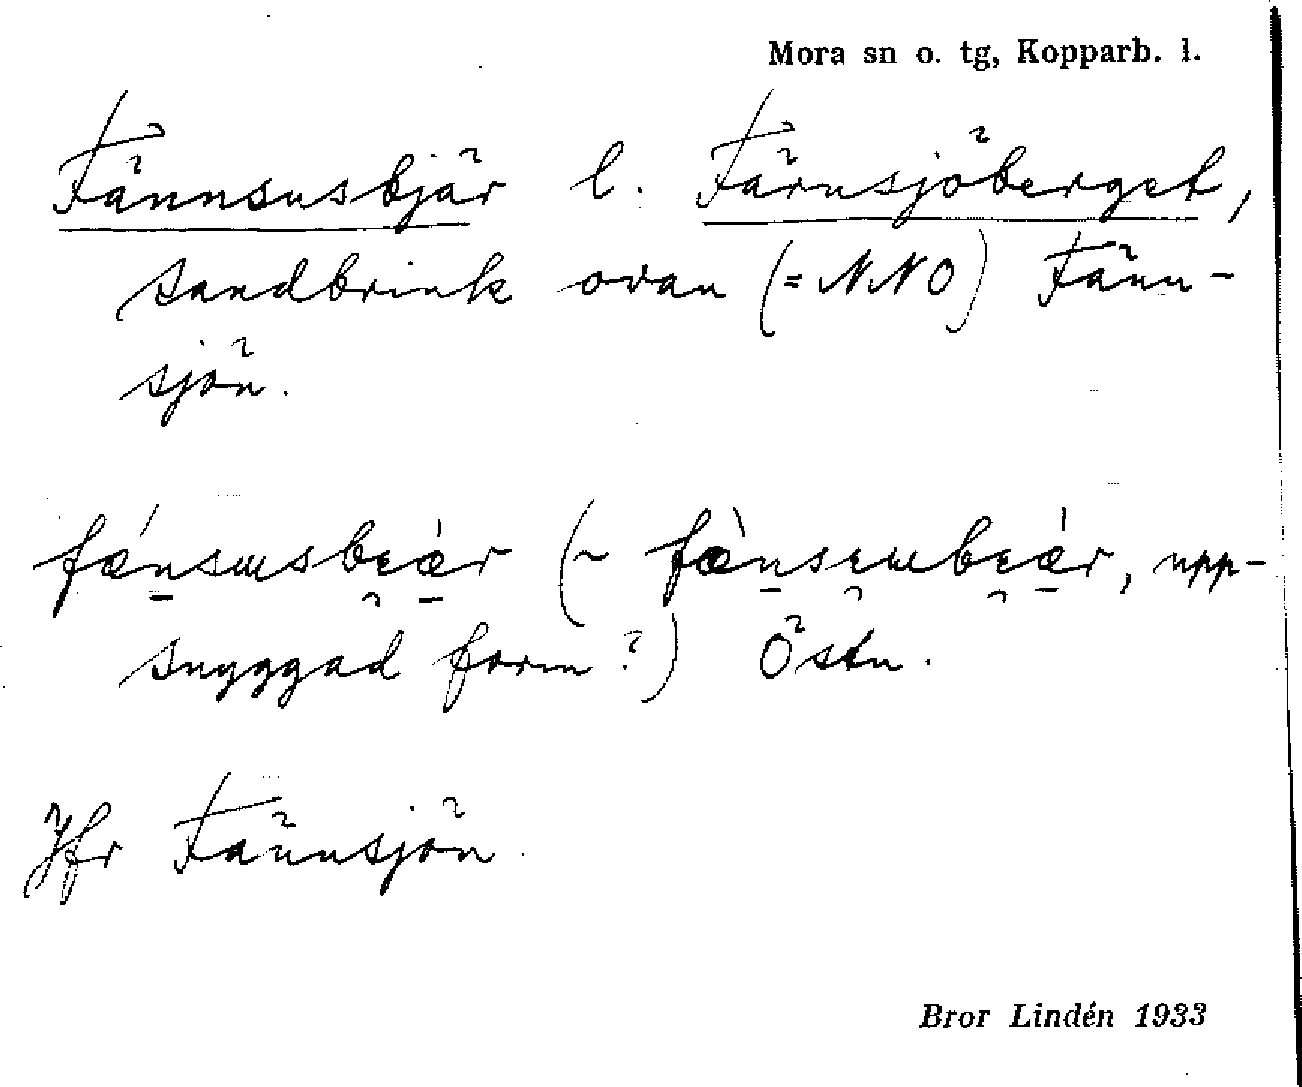 Mora sn o. tg, Kopparb. l.
Fännsusbjär l. Färnsjöberget,
sandbrink ovan (= NNO) Fänn-
sjön.
fǽnsɯsbɛæ̀r (~ fæ̀nsɛɯbɛæ̀r, upp-
snyggad form?) Östn.
Jfr Fännsjön.
Bror Lindén 1933